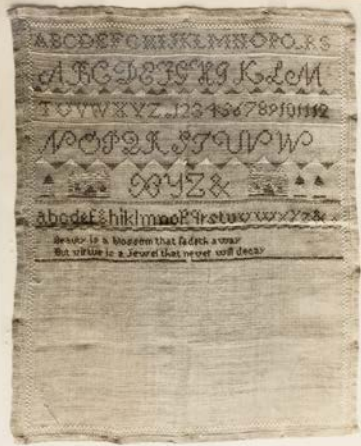 ABCDEFGHIJKLMNOPQRS
ABCDEFGHIKLM
TUVWXYZ.123456789101112
NOPQRSTUVW
XYZ&
abcdefghiklmnopqrstuvwxyz&.
Beauty is a blossom that fadeth away
But virtue is a Jewel that never will decay